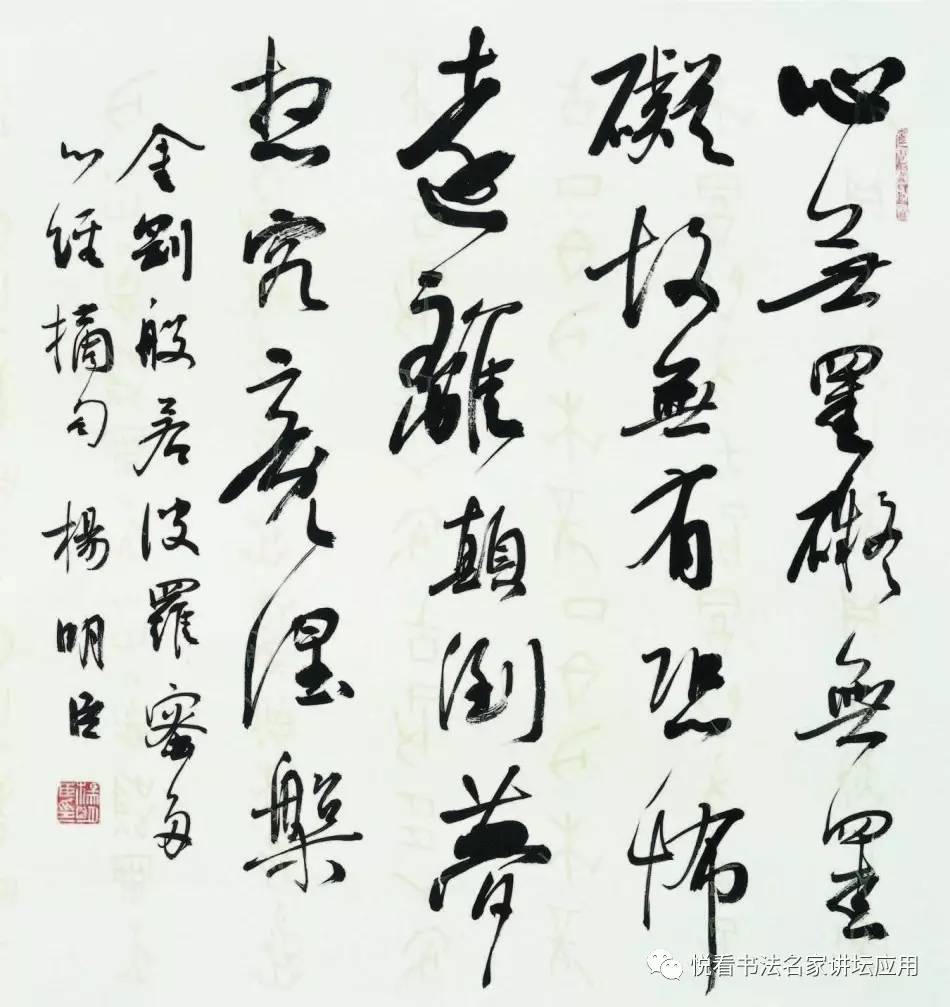 心無罣礙無罣
礙故無有恐怖
遠離顛倒夢
想究竟涅槃
金剛般若波羅蜜多
心經摘句 楊明臣
悦看书法名家讲坛应用